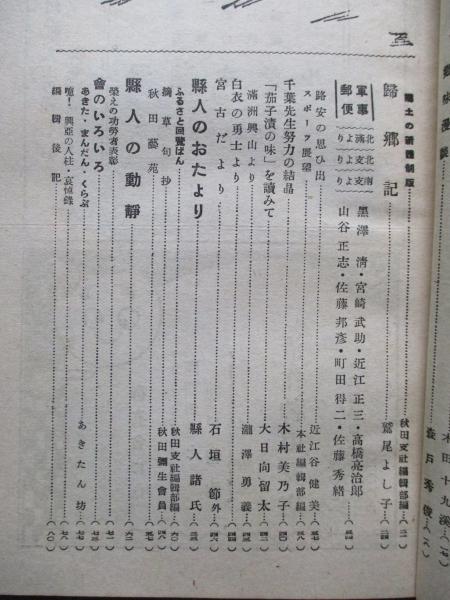 郷土の新體制版……秋田支社編輯部編…(二一)
歸鄕記……鷲尾よし子…(二四)
軍事郵便
北滿より
北支より
南支より
黑澤淸・宮崎武助・近江正三・高橋亮治郎
山谷正志・佐藤邦彦・町田得二・佐藤秀緖
路安の思ひ出……近江谷健美
スポーツ展望……本社編輯部編
千葉先生努力の結晶……木村美乃子…(四〇)
「茄子漬の味」を讀みて……大日向留太
滿洲興山より……瀧澤勇義
白衣の勇士より
宮古だより……石垣節外
縣人のおたより……縣人諸氏
ふるさと回覽ばん……秋田支社編輯部編…(六〇)
摘草句抄……秋田彌生會員
秋田藝苑
縣人の動靜
榮えの功勞者表彰
會のいろいろ
あきた・まんだん・くらぶ……あきたん坊
噫！興亞の人柱・哀悼錄
編輯後記……(八〇)